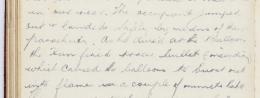 in our rear. The occupant jumped
out & landed safely by means of the
parachute. As he dived at the balloon
the Hun fired tracer bullets & incendiary
which caused the balloon to burst out
with flame in a couple of minutes